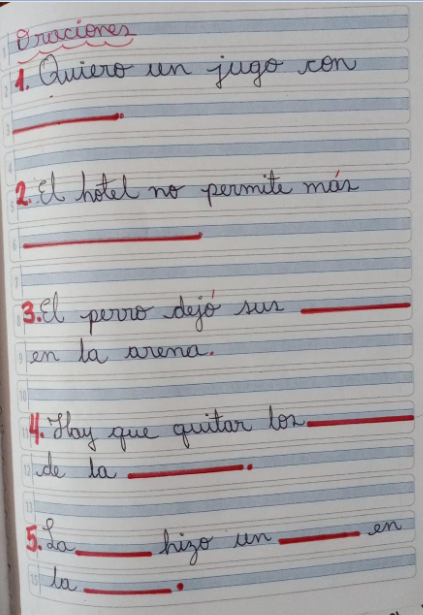 Oraciones
1. Quiero un jugo con
______.
2. El hotel no permite más
______.
3. El perro dejó sus ______
en la arena.
4. Hay que quitar los ______
de la ______.
5. La ______ hizo un ______ en
la ______.